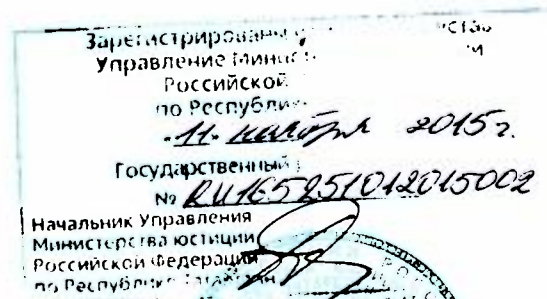 Зарегистрированы
Управление Минис
Российской
по Республик
"11" ноября 2015г.
Государственный
№ RU165251012015002
Начальник Управления
Министерства юстиции
Российской Федерации
по Республике Татарстан